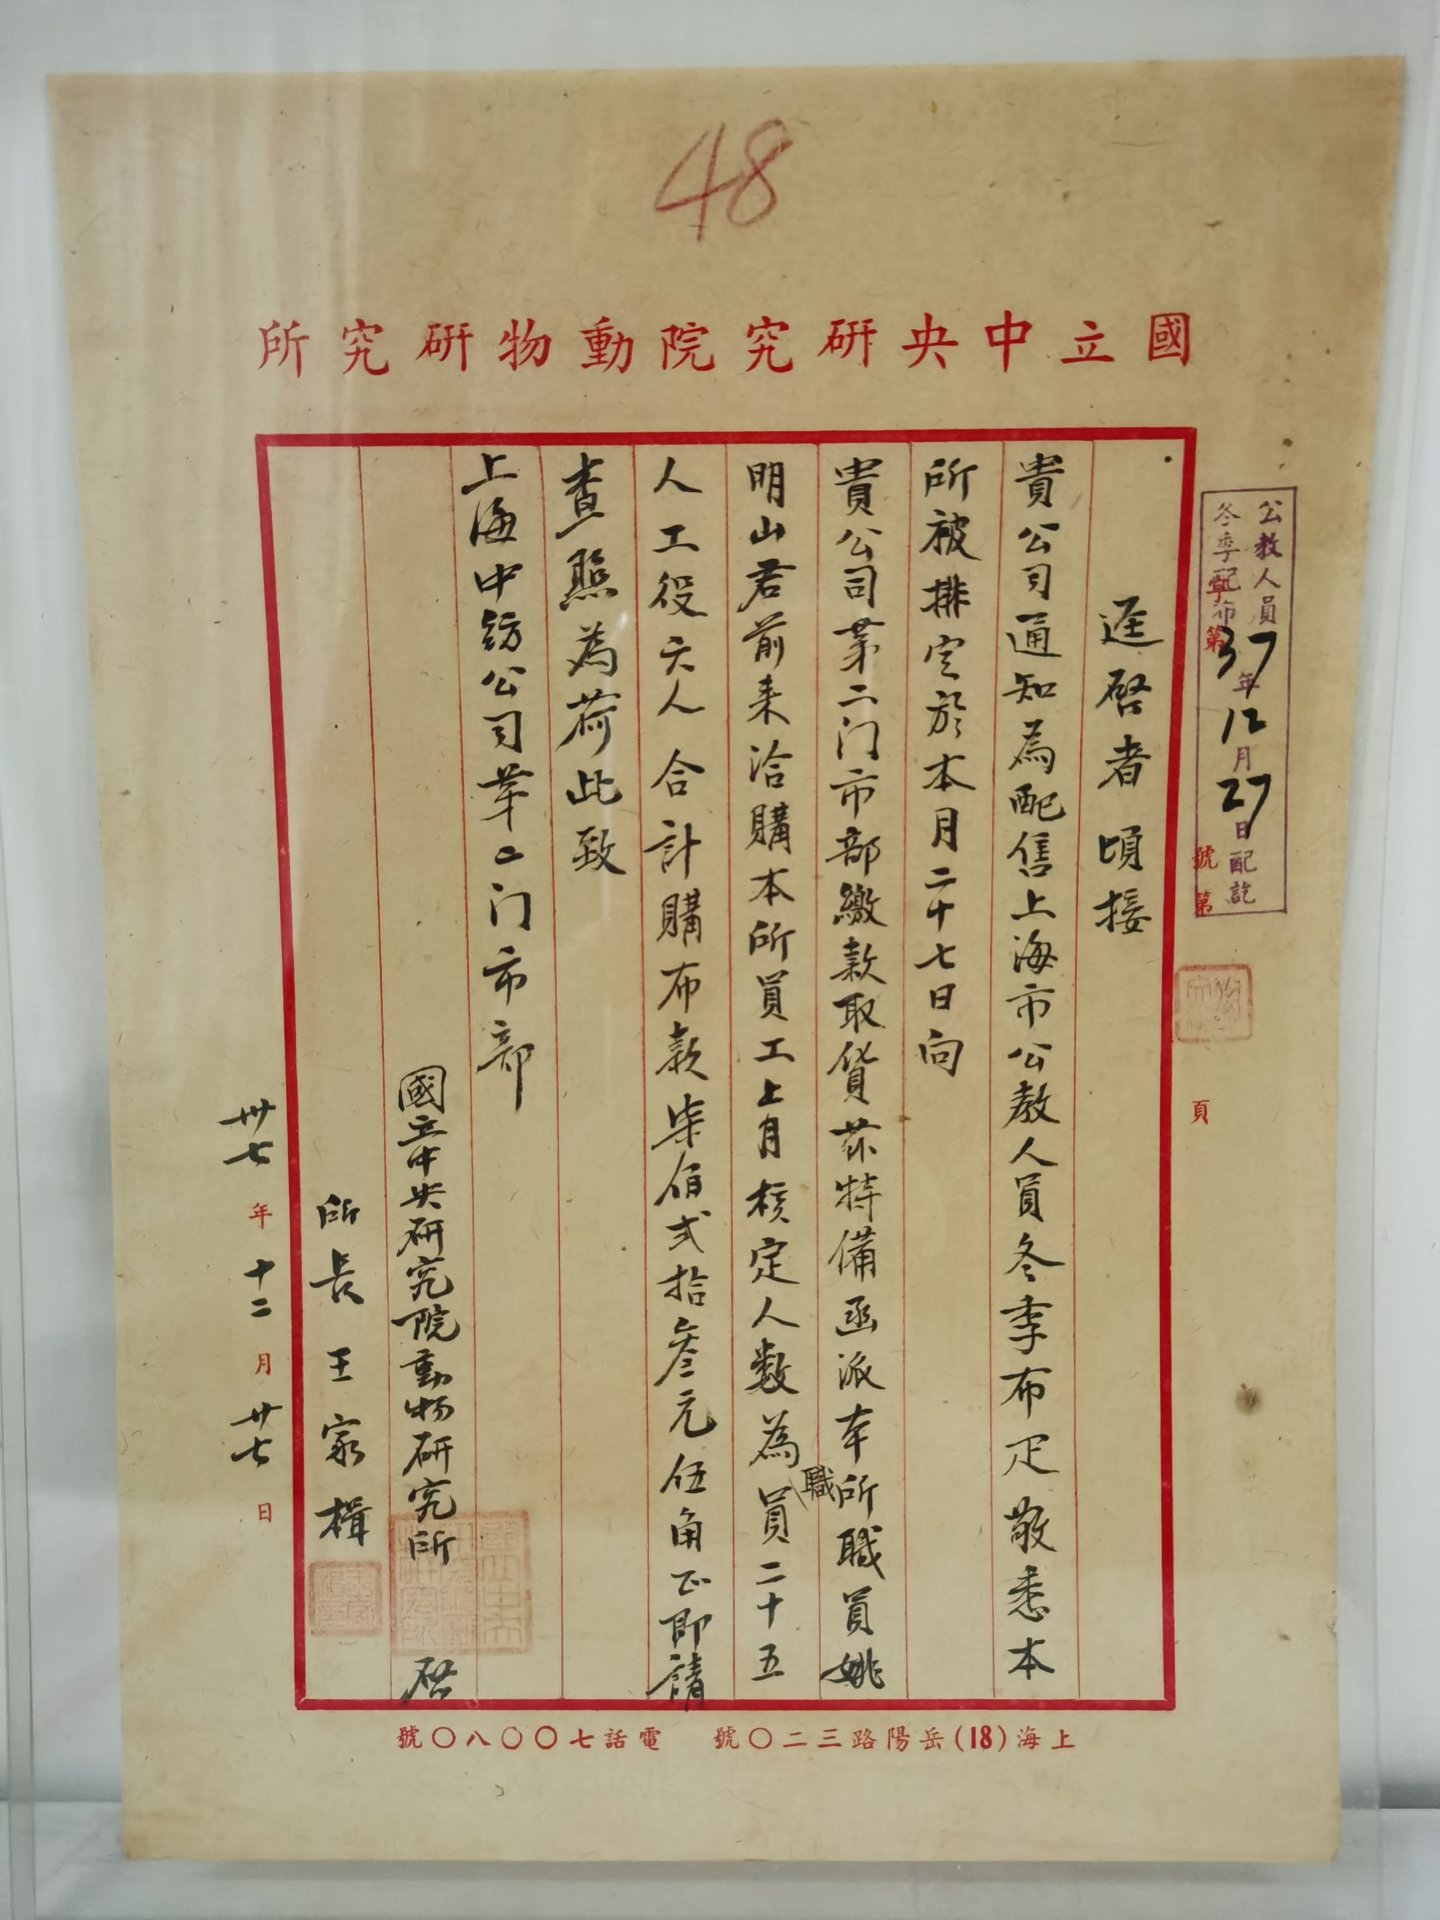 48
國立中央研究院動物研究所
公教人員
冬季配布
37年12月27日配訖
字第
號第
頁
逕啓者頃接
貴公司通知為配售上海市公教人員冬季布疋敬悉本
所被排定於本月二十七日向
貴公司第二门市部繳款取貨茲特備函派本所職員姚
明山君前來洽購本所員工上月核定人数為職員二十五
人工役六人合計購布款柒佰弍拾叁元伍角正即請
查照為荷此致
上海中紡公司第二门市部
國立中央研究院動物研究所 啓
所長王家楫
卅七年十二月廿七日
上海(18)岳陽路三二〇號 電話七〇〇八〇號